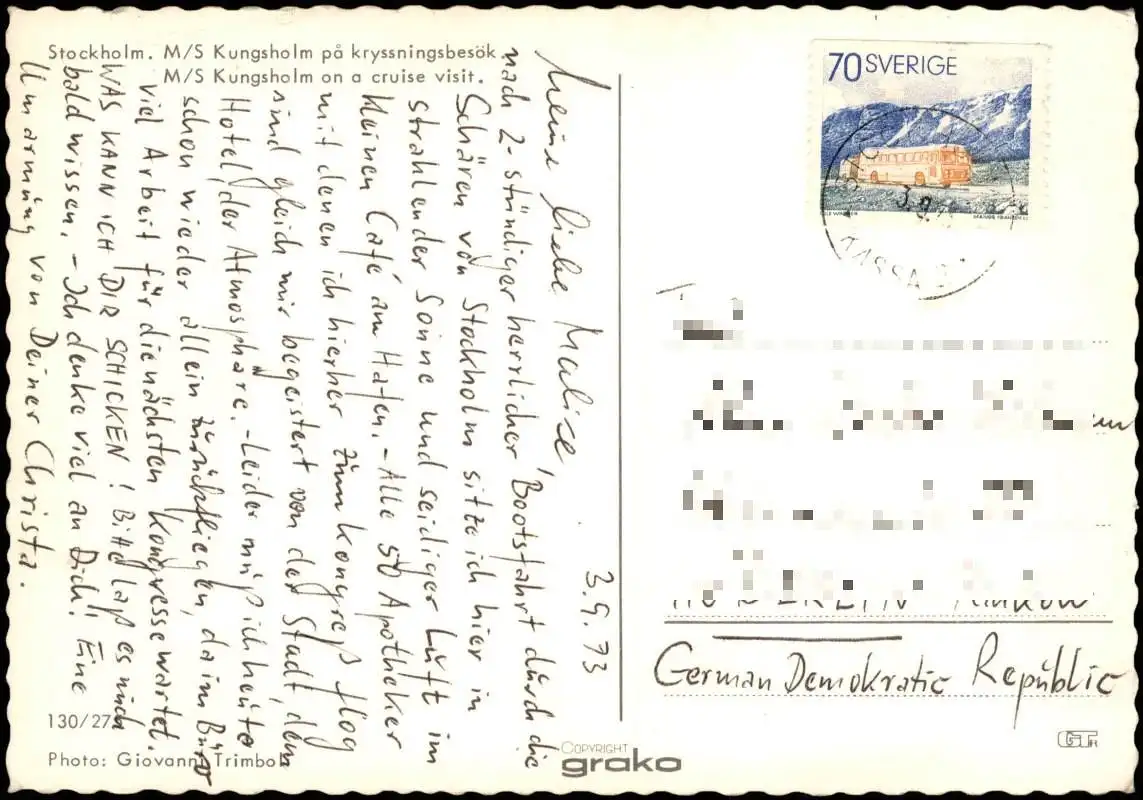 Stockholm. M/S Kungsholm på kryssningsbesök.
M/S Kungsholm on a cruise visit.
3.9.73
Meine liebe Malise,
nach 2-stündiger herrlicher Bootsfahrt durch die
Schären von Stockholm sitze ich hier in
strahlender Sonne und seidiger Luft im
kleinen Café am Hafen. - Alle 50 Apotheker
mit denen ich hierher zum Kongreß flog
sind gleich mir begeistert von der Stadt, dem
Hotel, der Atmosphäre. - Leider muß ich heute
schon wieder allein zurückfliegen, da im Büro
viel Arbeit für die nächsten Kongresse wartet.
WAS KANN ICH DIR SCHICKEN! Bitte laß es mich
bald wissen. - Ich denke viel an Dich! Eine
Umarmung von Deiner Christa.
130/27
Photo: Giovanni Trimboli
COPYRIGHT
grako
70 SVERIGE
KASSA
3.9.
German Demokratic Republic
GTR